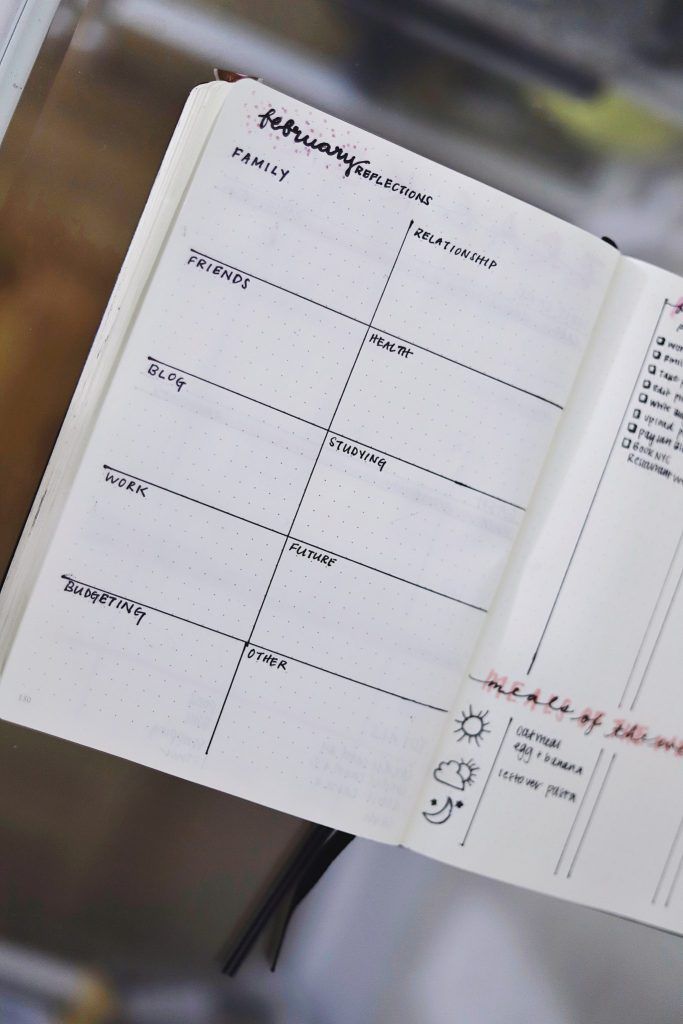 february REFLECTIONS
FAMILY
RELATIONSHIP
FRIENDS
HEALTH
BLOG
STUDYING
WORK
FUTURE
BUDGETING
OTHER
take
edit
write
upload
BOOK NYC
Restaurant
meals of the
oatmeal
egg + banana
leftover pasta